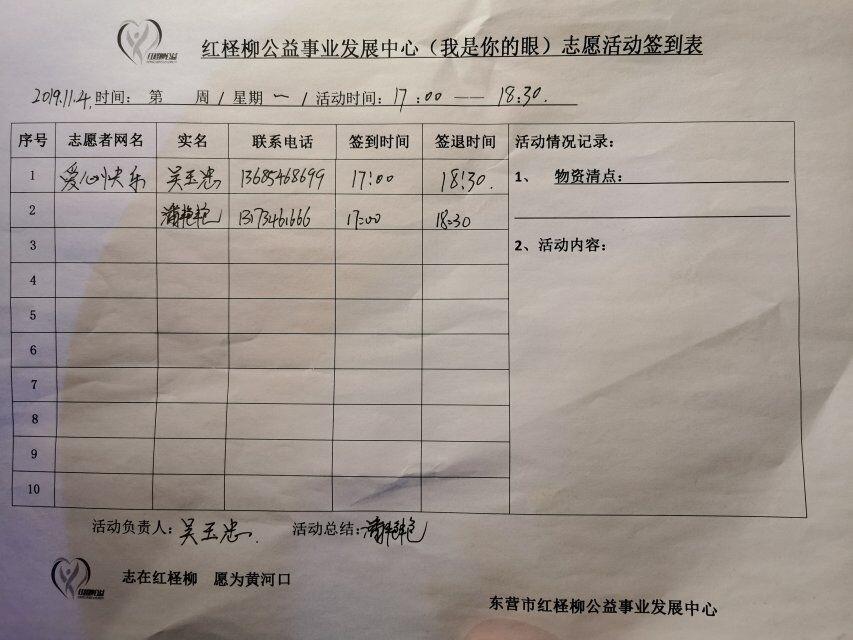 红柽柳公益事业发展中心（我是你的眼）志愿活动签到表
2019.11.4. 时间： 第 周 / 星期 一 / 活动时间：17:00 —— 18:30.
序号 志愿者网名 实名 联系电话 签到时间 签退时间 活动情况记录：
1 爱心快乐 吴玉忠 13685468699 17:00 18:30. 1、 物资清点：
2 13173461666 17:00 18:30
3 2、活动内容：
4
5
6
7
8
9
10
活动负责人：吴玉忠. 活动总结：
志在红柽柳 愿为黄河口
东营市红柽柳公益事业发展中心